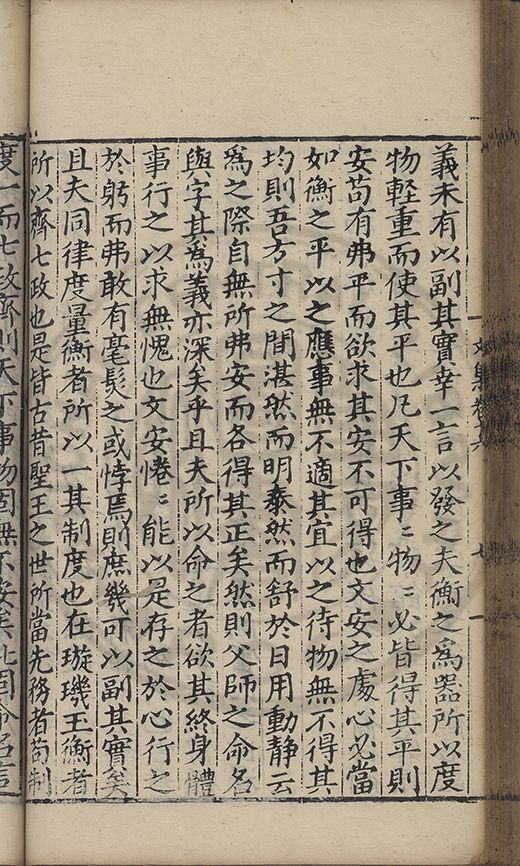 義未有以副其實幸一言以發之夫衡之爲器所以度
物軽重而使其平也凡天下事〻物〻必皆得其平則
安苟有弗平而欲求其安不可得也文安之處心必當
如衡之平以之應事無不適其宜以之待物無不得其
均則吾方寸之間湛然而明泰然而舒於日用動靜云
爲之際自無所弗安而各得其正矣然則父師之命名
與字其爲義亦深矣乎且夫所以命之者欲其終身體
事行之以求無愧也文安惓〻能以是存之於心行之
於躬而弗敢有毫髮之或悖焉則庶幾可以副其實矣
且夫同律度量衡者所以一其制度也在璇璣玉衡者
所以齊七政也是皆古昔聖王之世所當先務者苟制
度一而七政齊則天下事物固無不安矣此固命名言